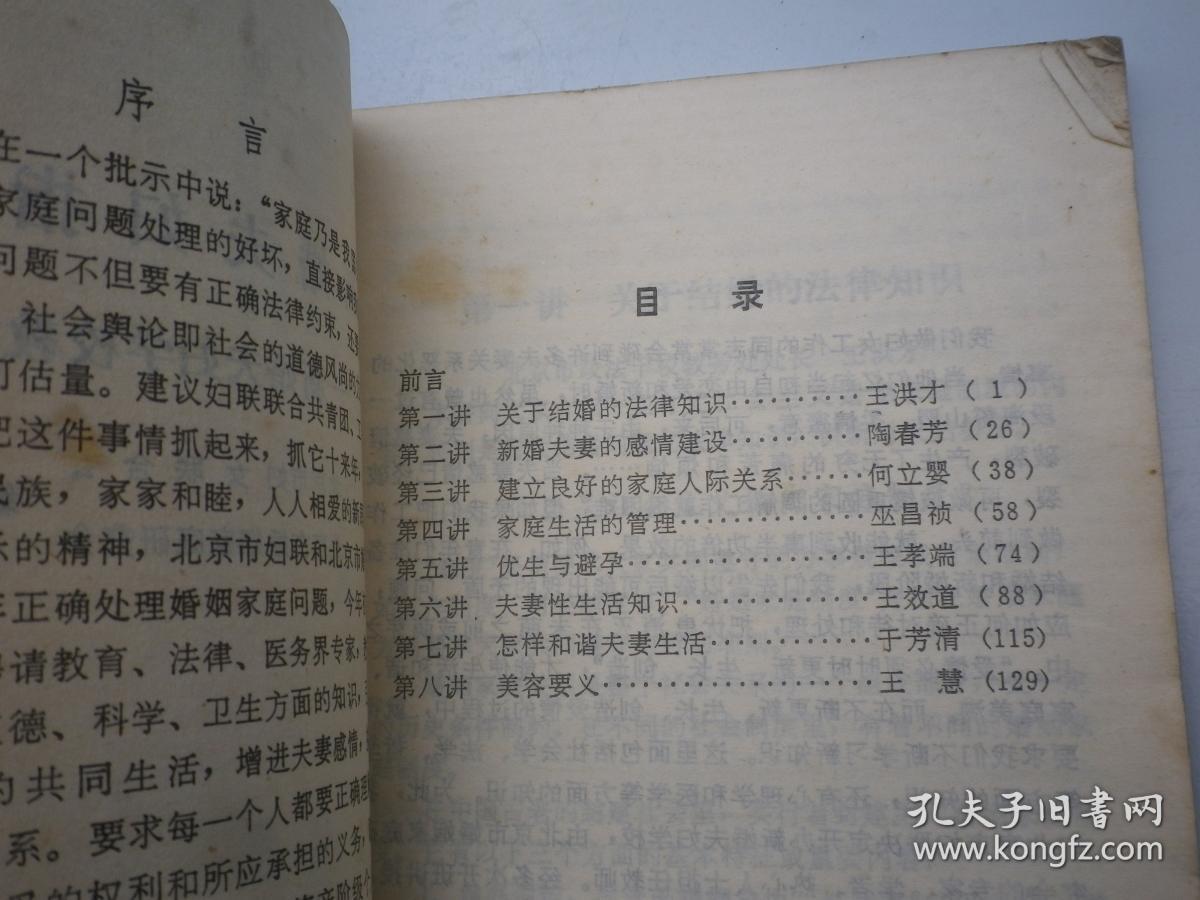 序 言
在一个批示中说：“家庭乃是我
家庭问题处理的好坏，直接影响
问题不但要有正确法律约束，还
社会舆论即社会的道德风尚的
可估量。建议妇联联合共青团、
把这件事情抓起来，抓它十来年
民族，家家和睦，人人相爱的新
示的精神，北京市妇联和北京市
正确处理婚姻家庭问题，今年
聘请教育、法律、医务界专家，
道德、科学、卫生方面的知识，
的共同生活，增进夫妻感情，
系。要求每一个人都要正确
的权利和所应承担的义务，
产阶级个
目 录
前言
第一讲 关于结婚的法律知识··········王洪才（1）
第二讲 新婚夫妻的感情建设··········陶春芳（26）
第三讲 建立良好的家庭人际关系······何立婴（38）
第四讲 家庭生活的管理··············巫昌祯（58）
第五讲 优生与避孕··················王孝端（74）
第六讲 夫妻性生活知识··············王效道（88）
第七讲 怎样和谐夫妻生活············于芳清（115）
第八讲 美容要义····················王 慧（129）
孔夫子旧书网
www.kongfz.com